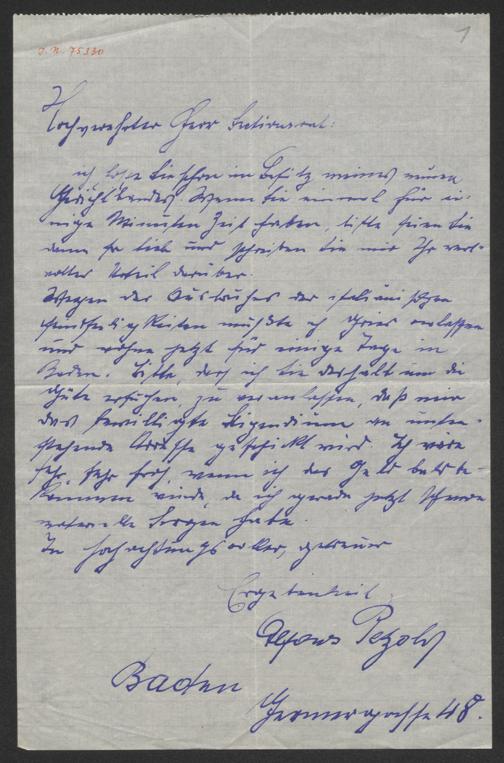 J. N. 75330
1
Hochverehrter Herr Sectionsrat:
ich hoffe Sie schon im Besitz meines neuen
Gedichtbandes. Wenn Sie einmal für ei-
nige Minuten Zeit haben, bitte seien Sie
dann so lieb und schreiben Sie mir Ihr wert-
volles Urteil darüber.
Wegen des Ausbruches der italienischen
Feindseligkeiten mußte ich Gries verlassen
und wohne jetzt für einige Tage in
Baden. Bitte, darf ich Sie deshalb um die
Güte ersuchen, zu veranlassen, daß mir
das bewilligte Stipendium an unten-
stehende Adresse geschickt wird. Ich wäre
sehr, sehr froh, wenn ich das Geld bald be-
kommen würde, da ich gerade jetzt
materielle Sorgen habe.
In hochachtungsvoller, getreuer
Ergebenheit
Alfons Petzold
Baden
48.